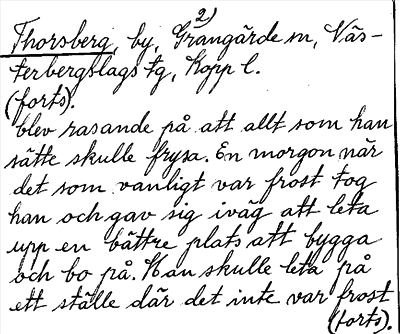 2)
Thorsberg, by, Grangärde sn, Väs-
terbergslags tg, Kopp l.
(forts).
blev rasande på att allt som han
sätte skulle frysa. En morgon när
det som vanligt var frost tog
han och gav sig iväg att leta
upp en bättre plats att bygga
och bo på. Han skulle leta på
ett ställe där det inte var frost
(forts).